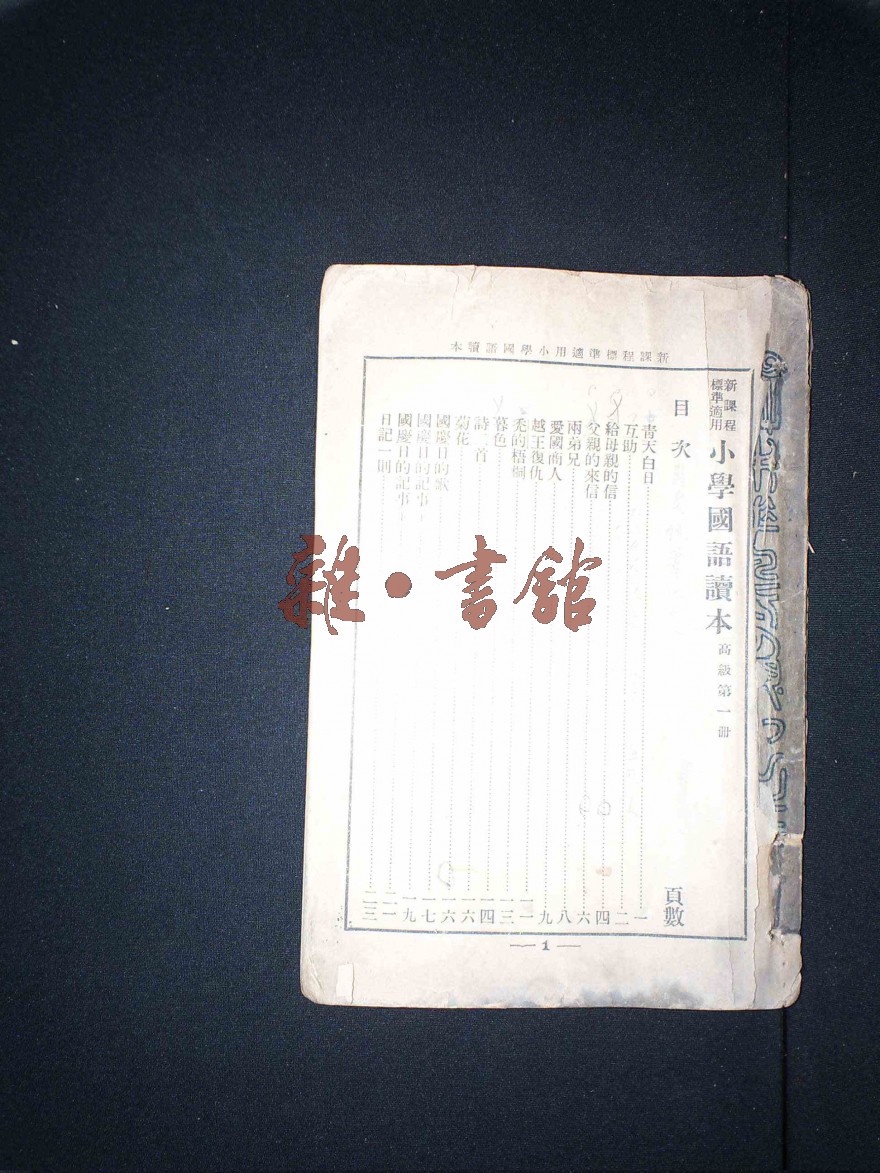 新課程標準適用小學國語讀本
新課程
標準適用
小學國語讀本 高級第一冊
目次 頁數
青天白日 一
互助 二
給母親的信 四
父親的來信 六
兩弟兄 八
愛國商人 九
越王復仇 一一
禿的梧桐 一三
暮色 一四
詩二首 一六
菊花 一六
國慶日的歌 一七
國慶日的記事 一九
國慶日的記事 二一
日記一則 二三
1
雜·書館